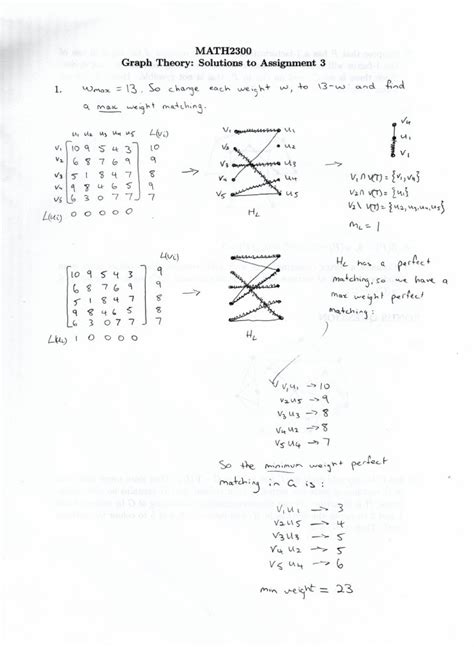 MATH2300
Graph Theory: Solutions to Assignment 3
1. Wmax = 13. So change each weight w, to 13-w and find
a max weight matching.
u1 u2 u3 u4 u5 L(vi)
v1 10 9 5 4 3 10
v2 6 8 7 6 9 9
v3 5 1 8 4 7 8
v4 9 8 4 6 5 9
v5 6 3 0 7 7 7
L(ui) 0 0 0 0 0
→
v1 u1
v2 u2
v3 u3
v4 u4
v5 u5
HL
→
v4
u1
v1
V1 ∩ V(T) = {v1, v4}
V2 ∩ V(T) = {u1}
V2 \ V(T) = {u2, u3, u4, u5}
mL = 1
L(vi)
10 9 5 4 3 9
6 8 7 6 9 9
5 1 8 4 7 8
9 8 4 6 5 8
6 3 0 7 7 7
L(ui) 1 0 0 0 0
→
HL
HL has a perfect
matching, so we have a
max weight perfect
matching:
v1u1 → 10
v2u5 → 9
v3u3 → 8
v4u2 → 8
v5u4 → 7
So the minimum weight perfect
matching in G is:
v1u1 → 3
v2u5 → 4
v3u3 → 5
v4u2 → 5
v5u4 → 6
min weight = 23